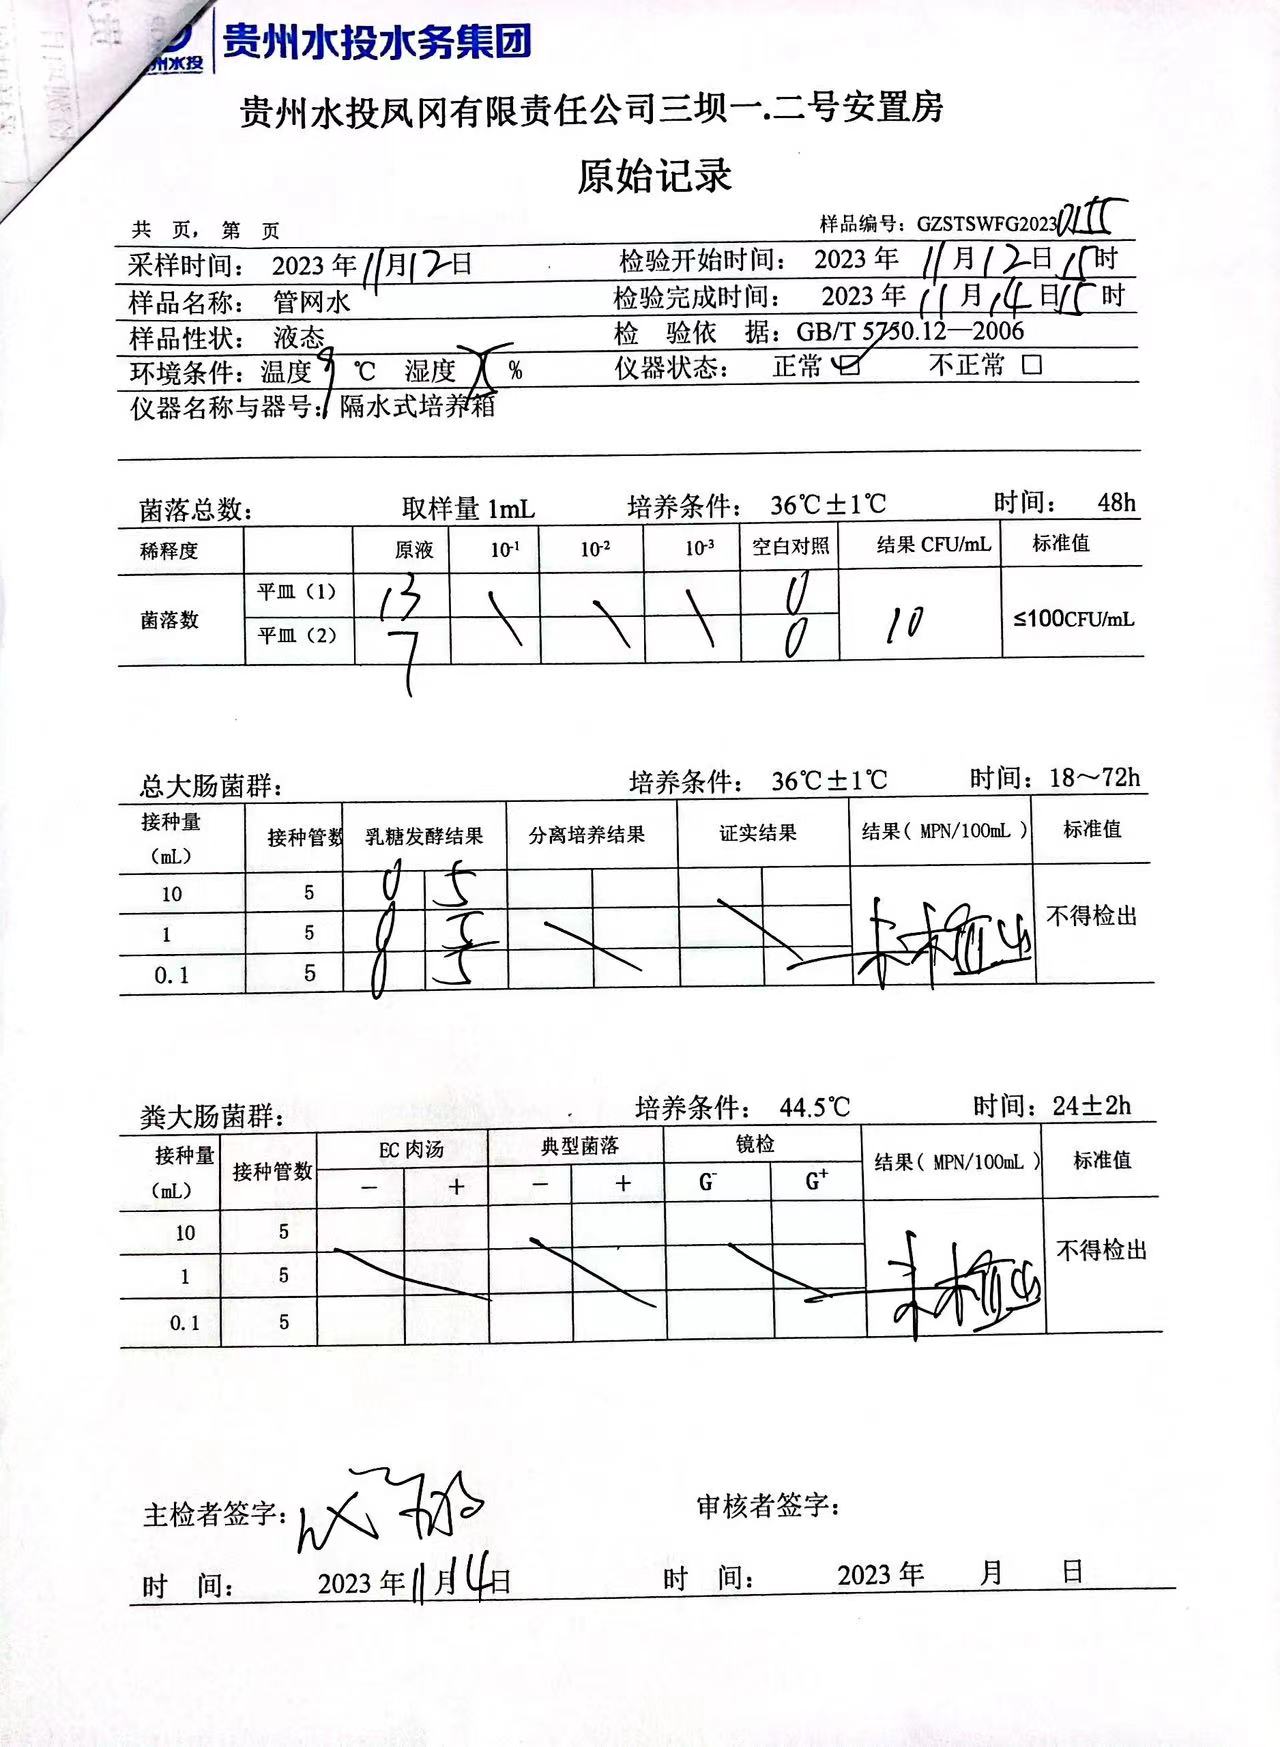 州水投 贵州水投水务集团
贵州水投凤冈有限责任公司三坝一.二号安置房
原始记录
共 页, 第 页 样品编号: GZSTSWFG2023
采样时间: 2023 年 11 月 12 日 检验开始时间: 2023 年 11 月 12 日 15 时
样品名称: 管网水 检验完成时间: 2023 年 11 月 14 日 15 时
样品性状: 液态 检 验依 据: GB/T 5750.12—2006
环境条件: 温度 9 ℃ 湿度 % 仪器状态: 正常 ☑ 不正常 □
仪器名称与器号: 隔水式培养箱
菌落总数: 取样量 1mL 培养条件: 36℃±1℃ 时间: 48h
稀释度 原液 10-1 10-2 10-3 空白对照 结果 CFU/mL 标准值
菌落数 平皿(1) 13 \ \ \ 0 10 ≤100CFU/mL
平皿(2) 7 0
总大肠菌群: 培养条件: 36℃±1℃ 时间: 18～72h
接种量(mL) 接种管数 乳糖发酵结果 分离培养结果 证实结果 结果( MPN/100mL ) 标准值
10 5 0 5 未检出 不得检出
1 5 0 5
0.1 5 0 5
粪大肠菌群: 培养条件: 44.5℃ 时间: 24±2h
接种量(mL) 接种管数 EC 肉汤 典型菌落 镜检 结果( MPN/100mL ) 标准值
－ + － + G- G+
10 5 未检出 不得检出
1 5
0.1 5
主检者签字: 审核者签字:
时 间: 2023 年 11 月 14 日 时 间: 2023 年 月 日